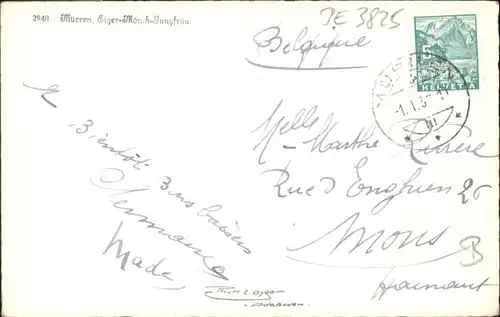 2948 Murren, Eiger-Mönch-Jungfrau.
JE 3825
Belgique
5
HELVETIA
MÜRREN
-1.1.3
Melle
Marthe
Rue d'Enghien 26
Mons
B
Hainaut
A
Bientôt
Bons baisers
Germaine
Made